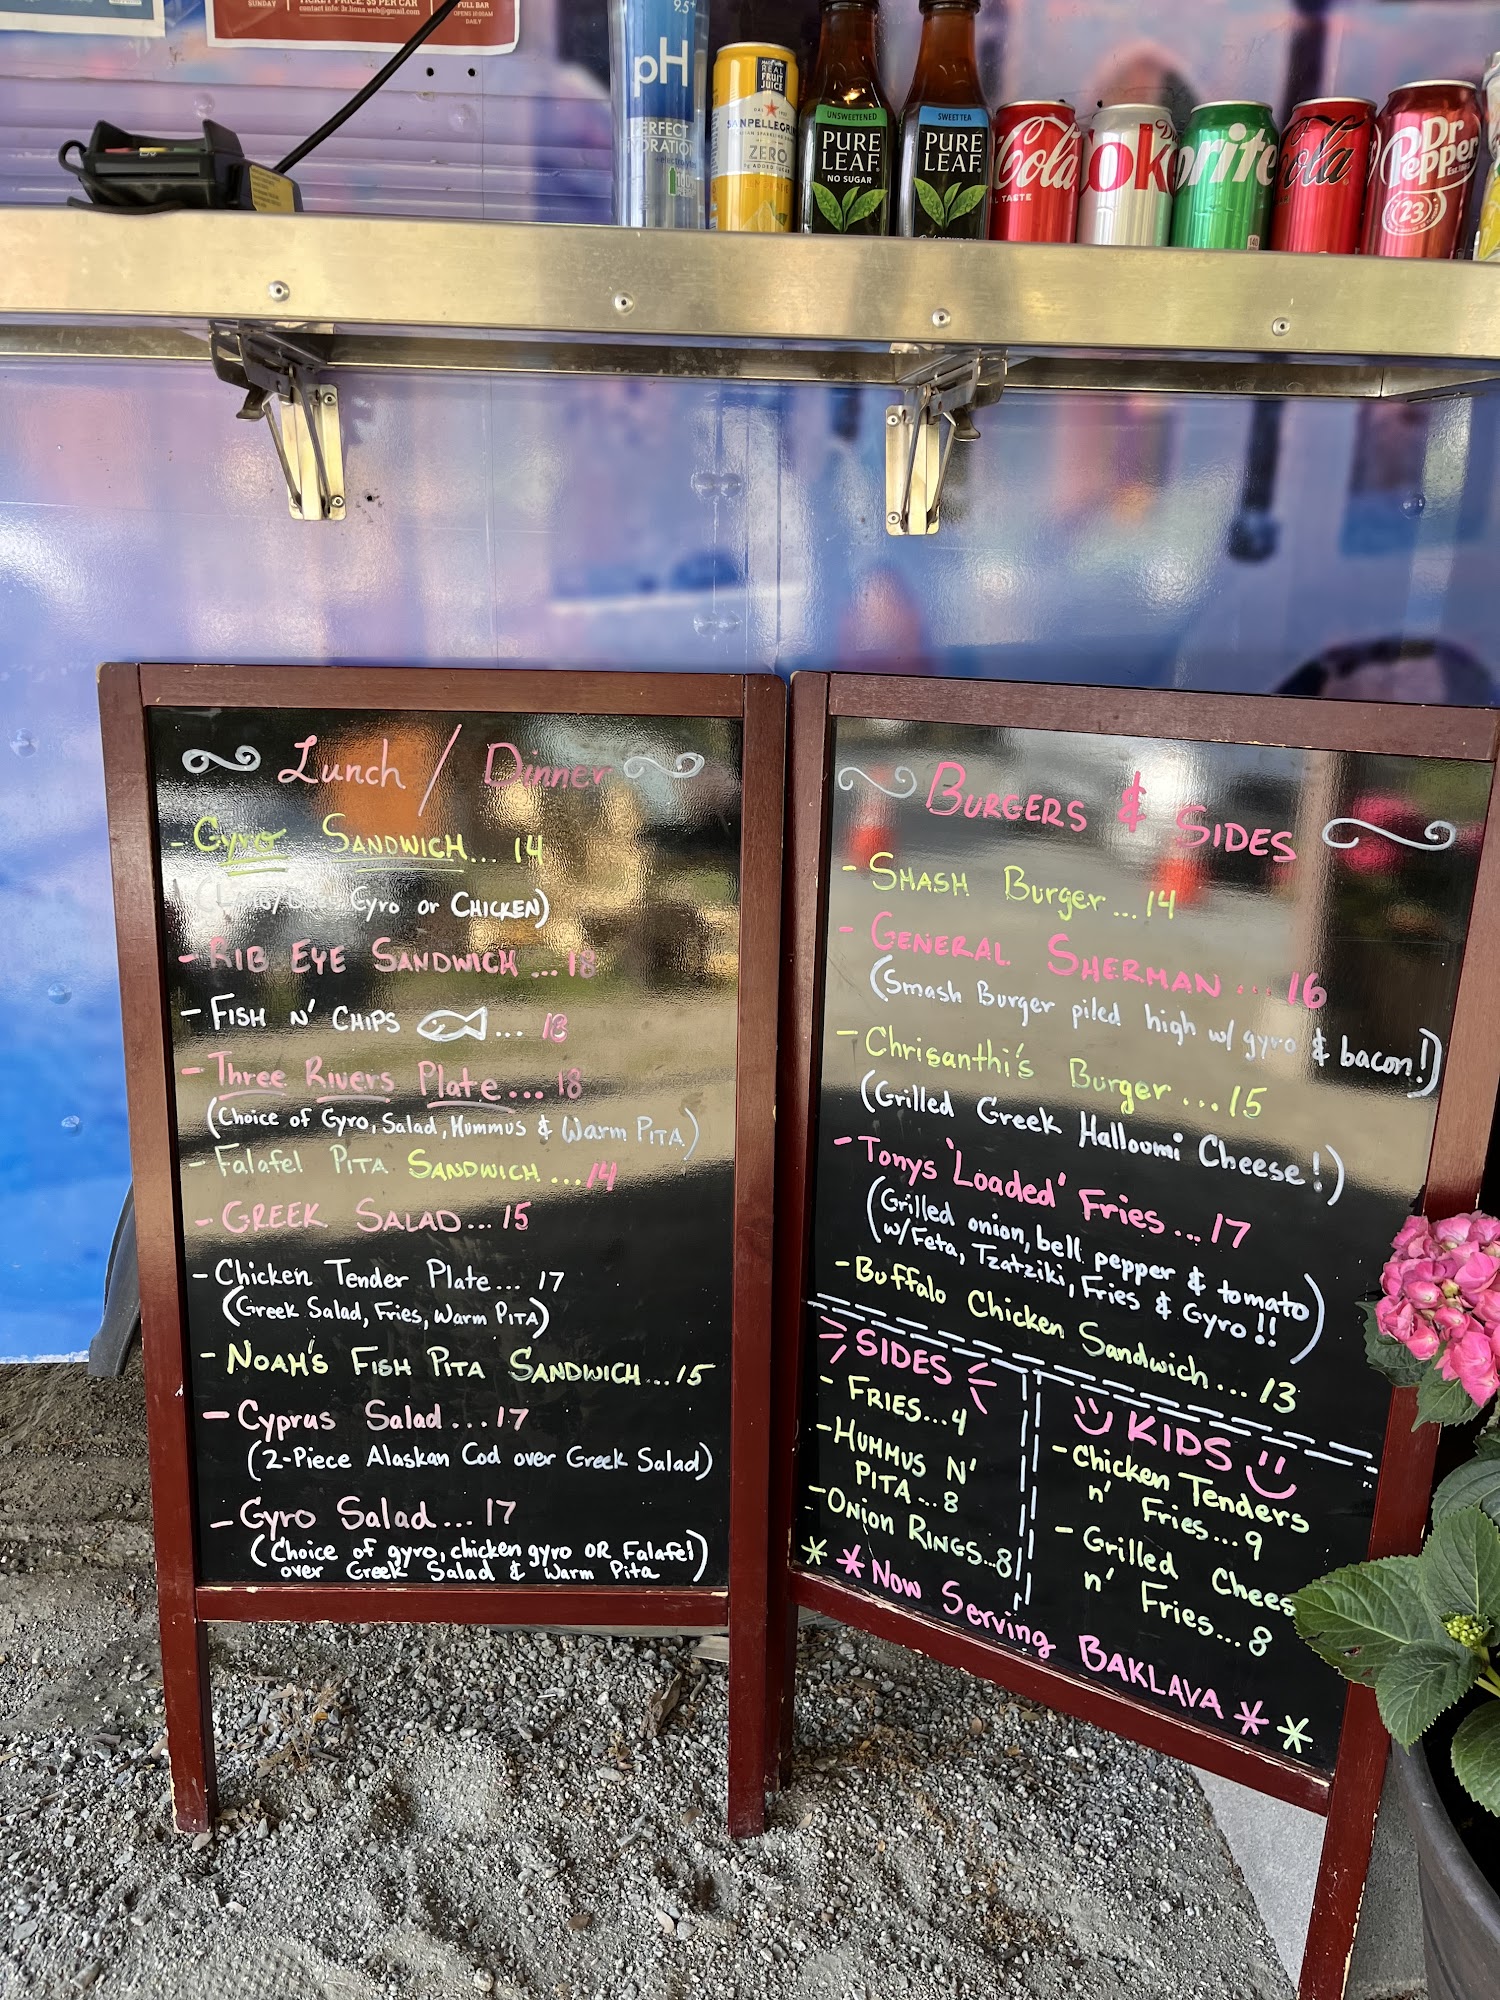 SUNDAY
TICKET PRICE: $5 PER CAR
contact info: 3r.lions.web@gmail.com
FULL BAR
OPENS 10:00AM
DAILY
9.5+
pH
PERFECT
HYDRATION
MADE WITH
REAL
FRUIT
JUICE
SANPELLEGRINO
ZERO
UNSWEETENED
PURE
LEAF
NO SUGAR
SWEET TEA
PURE
LEAF
Coca Cola
TASTE
Coke
Sprite
Cola
Dr
Pepper
23
Lunch / Dinner
- Gyro SANDWICH... 14
(Lamb/Beef Gyro or CHICKEN)
- RIB EYE SANDWICH ... 18
- FISH N' CHIPS ... 18
- Three Rivers Plate... 18
(Choice of Gyro, Salad, Hummus & Warm PITA)
- Falafel PITA SANDWICH ... 14
- GREEK SALAD... 15
- Chicken Tender Plate... 17
(Greek Salad, Fries, Warm PITA)
- NOAH'S FISH PITA SANDWICH... 15
- Cyprus Salad... 17
(2-Piece Alaskan Cod over Greek Salad)
- Gyro Salad... 17
(Choice of gyro, chicken gyro OR Falafel)
over Greek Salad & Warm Pita
BURGERS & SIDES
- SMASH Burger... 14
- GENERAL SHERMAN ... 16
(Smash Burger piled high w/ gyro & bacon!)
- Chrisanthi's Burger ... 15
(Grilled Greek Halloumi Cheese!)
- Tonys 'Loaded' Fries... 17
(Grilled onion, bell pepper & tomato
w/Feta, Tzatziki, Fries & Gyro!!)
- Buffalo Chicken Sandwich... 13
SIDES
- FRIES...4
- HUMMUS N'
PITA...8
- ONION RINGS...8
KIDS
- Chicken Tenders
n' Fries... 9
- Grilled Chees
n' Fries... 8
* * Now Serving BAKLAVA * *